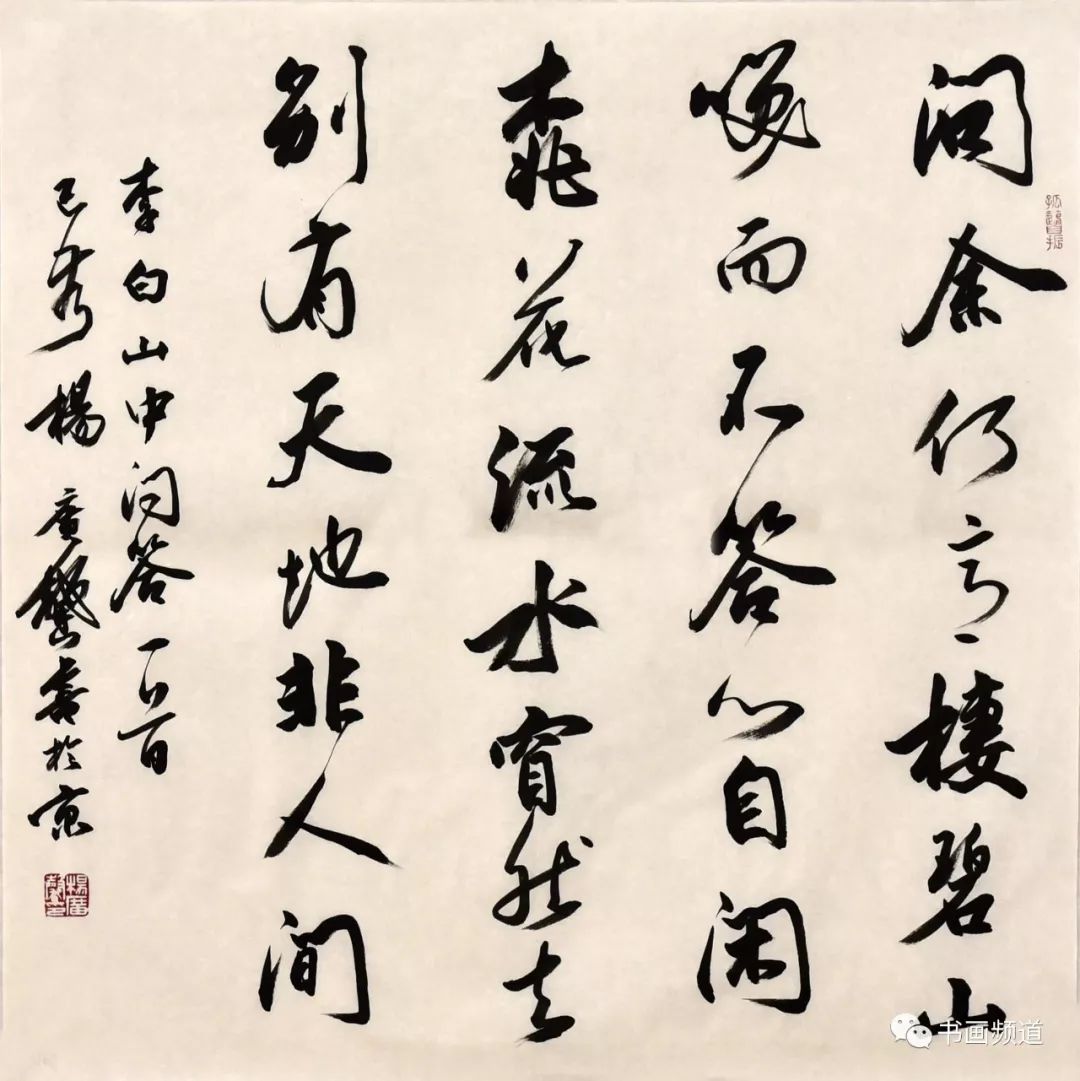 问余何意棲碧山
咲而不答心自闲
桃花流水窅然去
别有天地非人间
李白山中问答一首
己亥楊廣馨書於京
书画频道